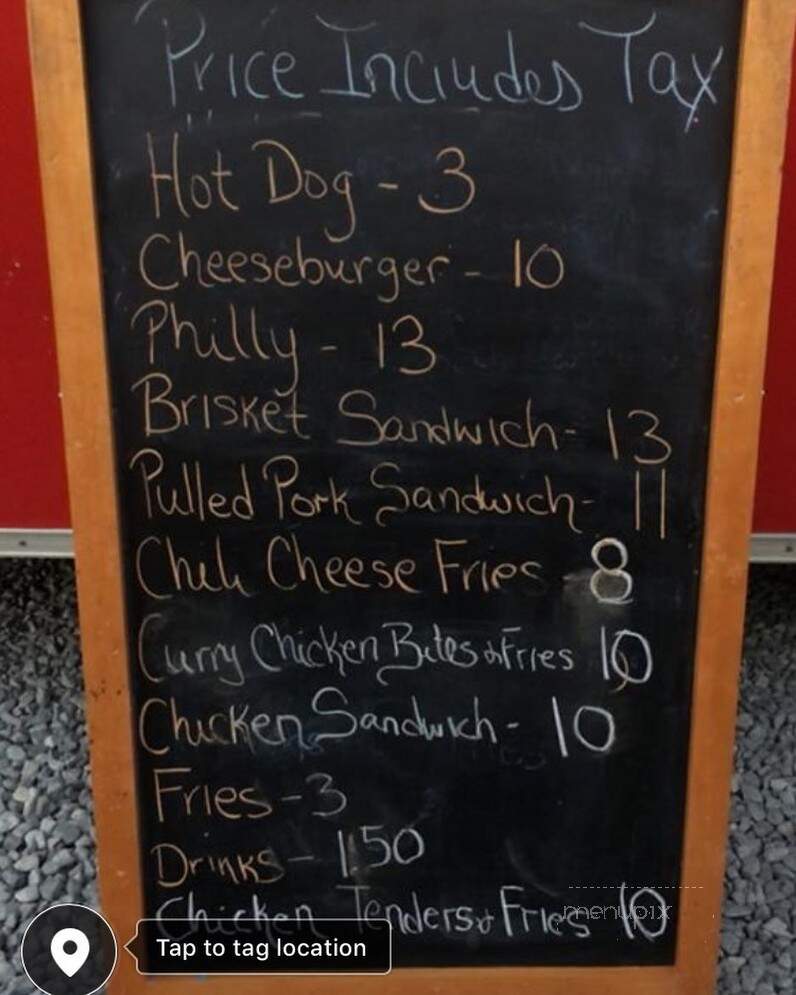 Price Includes Tax
Hot Dog - 3
Cheeseburger - 10
Philly - 13
Brisket Sandwich - 13
Pulled Pork Sandwich - 11
Chili Cheese Fries - 8
Curry Chicken Bites & Fries 10
Chicken Sandwich - 10
Fries - 3
Drinks - 1.50
Chicken Tenders & Fries 10
menupix
Tap to tag location